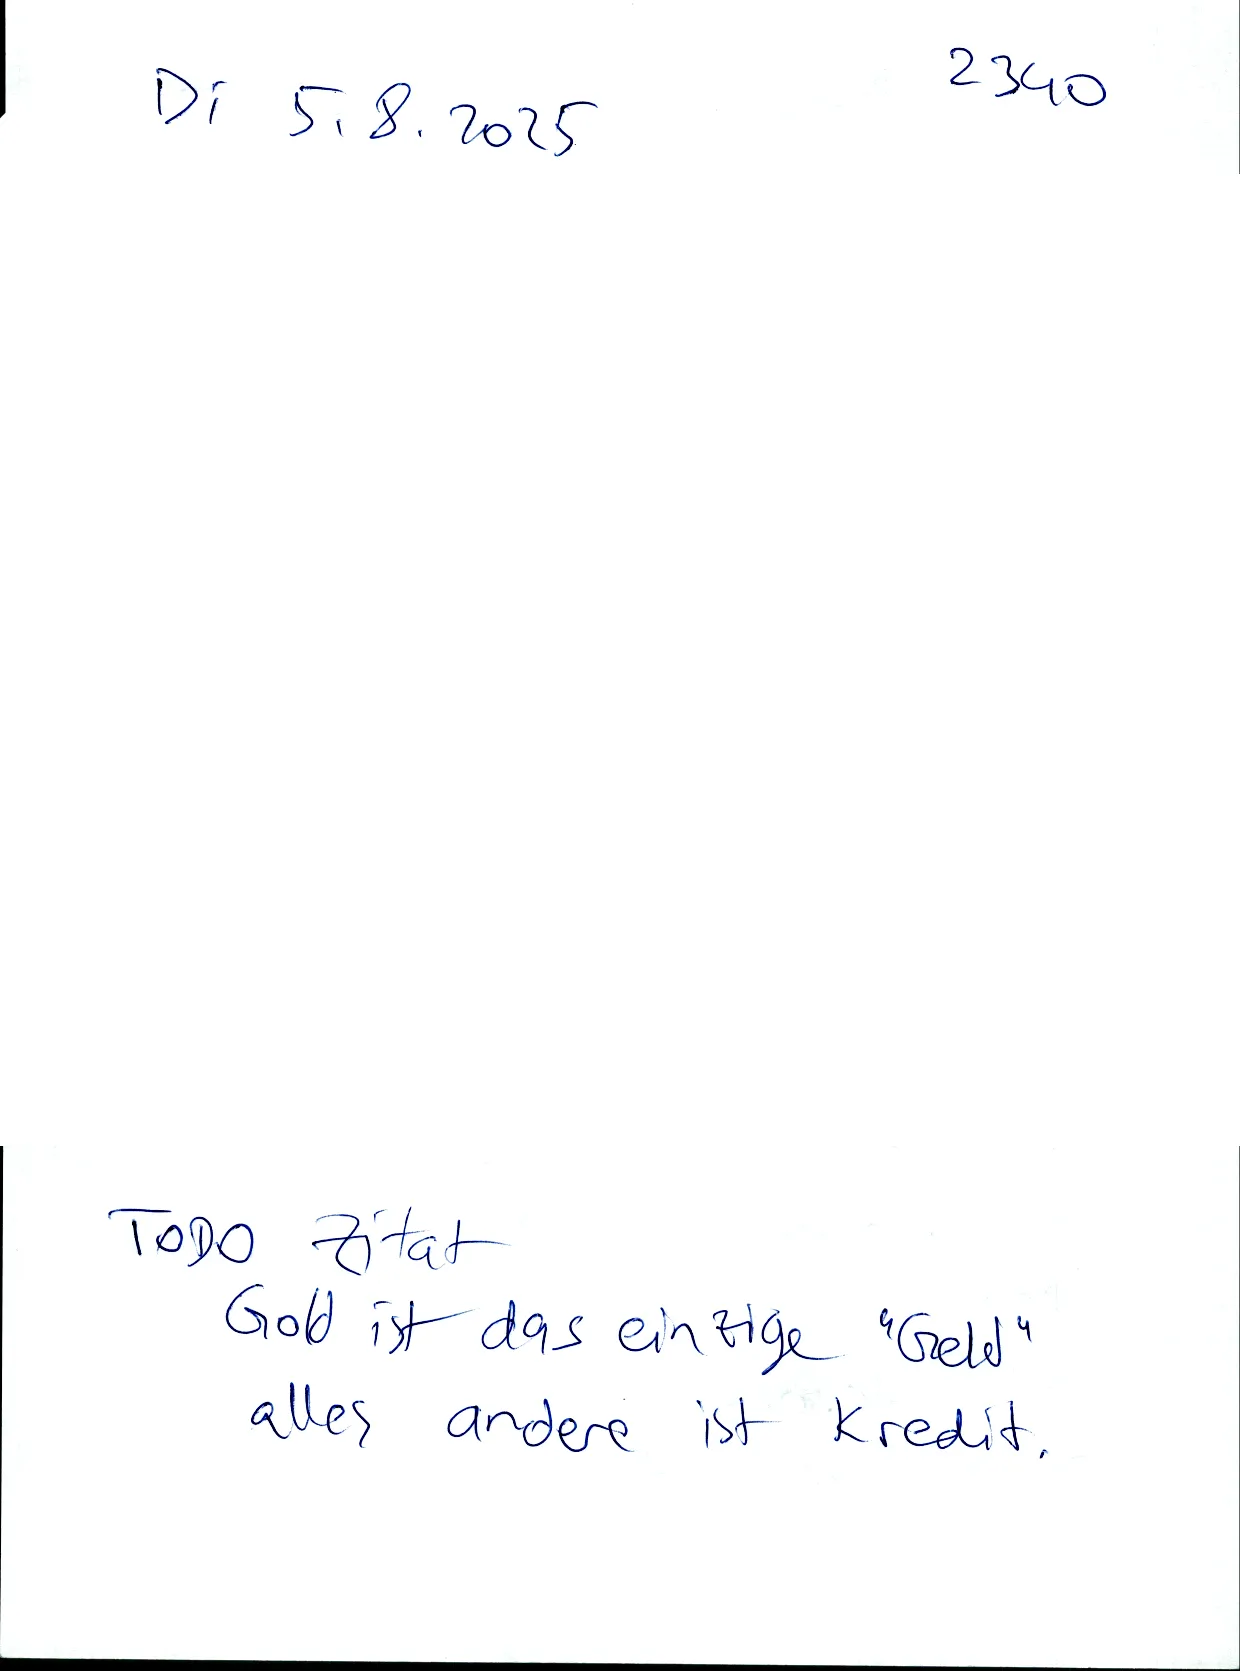 Di 5.8.2025 2340
TODO Zitat
Gold ist das einzige "Geld"
alles andere ist Kredit.